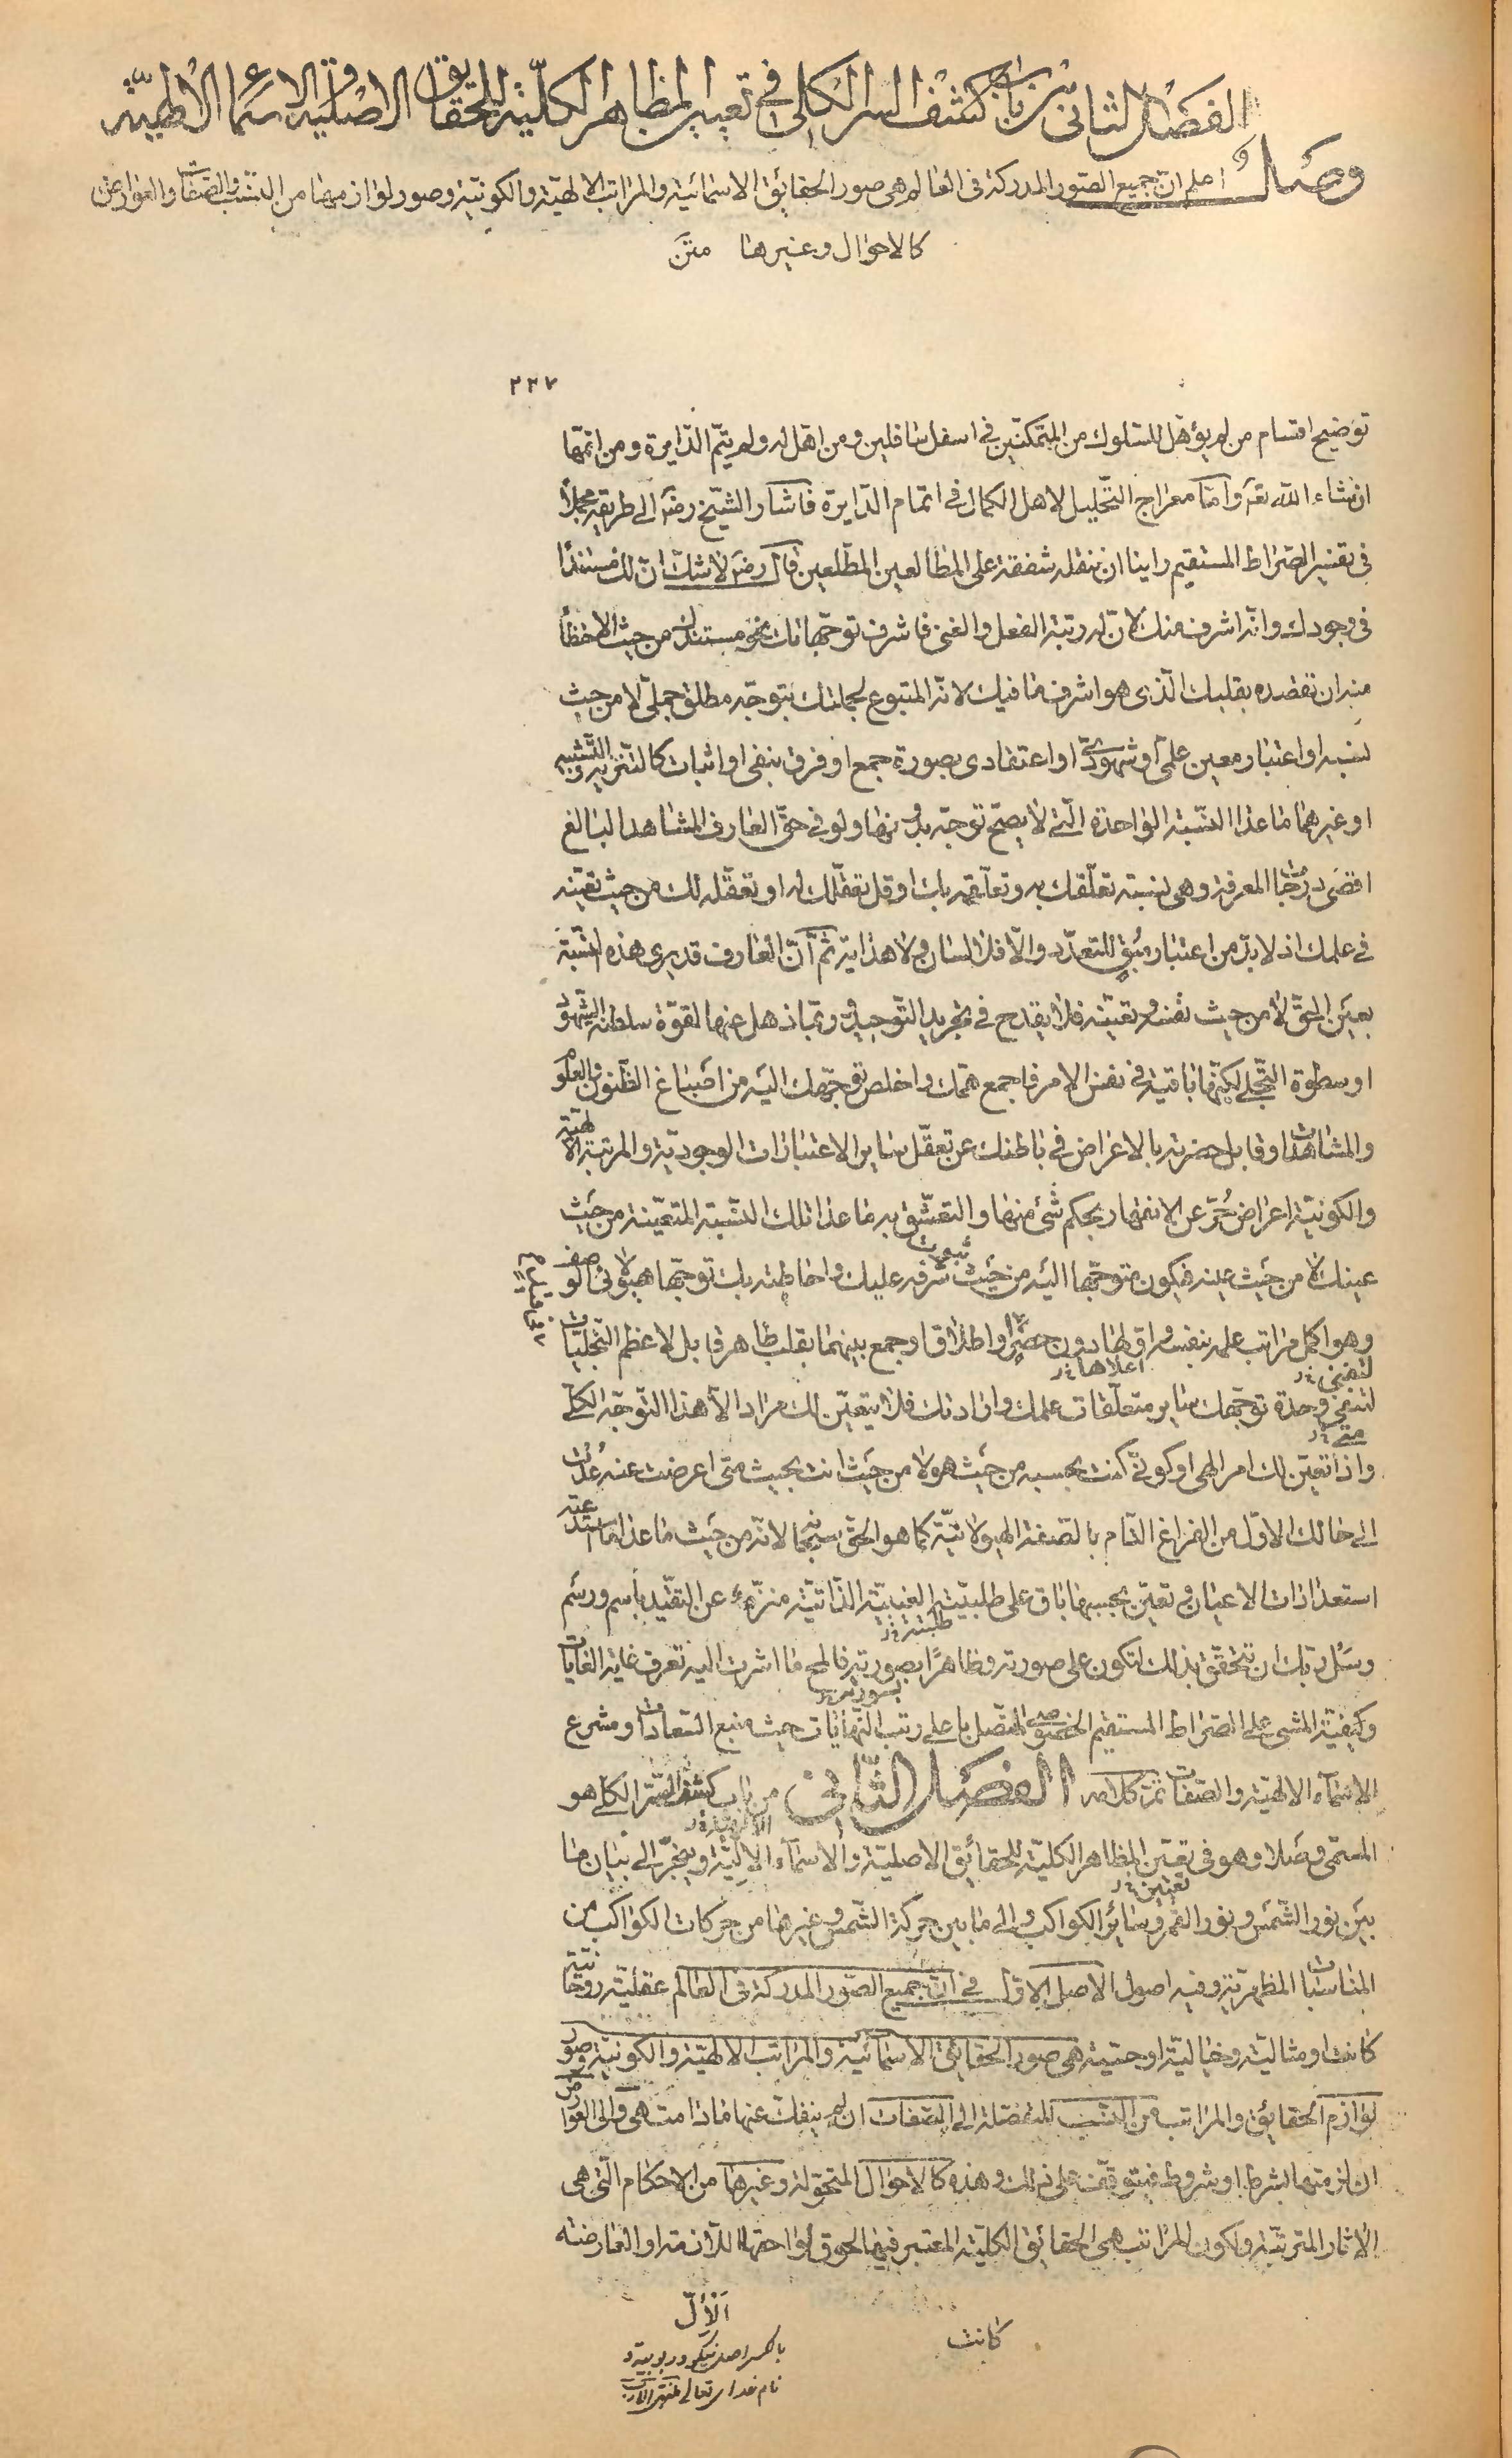 الفصل الثانى من باب كشف السر الكلى فى تعيين المظاهر الكلية للحقايق الاصلية والاسماء الالهية
وصل اعلم ان جميع الصور المدركة فى العالم هى صور الحقائق الاسمائية والمراتب الالهية والكونية وصور لوازمهما من النسب والصفات والعوارض
كالاحوال وغيرها متن
٢٣٧
توضيح اقسام من لم يؤهل للسلوك من المتمكنين فى اسفل سافلين ومن اهل له ولم يتم الدايرة ومن اتمها
ان شاء الله تعه واما معراج التحليل لاهل الكمال فى اتمام الدايرة فاشار الشيخ رضه الى طريقه مجملا
فى تفسير الصراط المستقيم راينا ان ننقله شفقة على المطالعين المطلعين قال رضه لا شك ان لك مستندا
فى وجودك وانه اشرف منك لان له رتبة الفعل والغنى فاشرف توجهاتك نحو مستندك من حيث الاحظا
منه ان تقصده بقلبك الذى هو اشرف ما فيك لانه المتبوع لجملتك بتوجه مطلق جملى لا من حيث
نسبة او اعتبار معين علمى او شهودى او اعتقادى بصورة جمع او فرق بنفى او اثبات كالتنزيه والتشبيه
او غيرهما ما عدا النسبة الواحدة التى لا يصح توجه بدونها ولو فى حق العارف المشاهد البالغ
اقصى درجات المعرفة وهى نسبة تعلقك به وتعلقه بك او قل تعقلك له او تعقله لك من حيث تعينه
فى علمك اذ لا بد من اعتبار مبق للتعدد والا فلا لسان ولا هداية ثم ان العارف قد يرى هذه النسبة
بعين الحق لا من حيث نفسه وتعينه فلا يقدح فى تجريد التوحيد وربما ذهل عنها لقوة سلطنة الشهود
او سطوة التجلى لكنها باقية فى نفس الامر فاجمع همك واخلص توجهك اليه من اصباغ الظنون والعلوم
والمشاهدات وقابل حضرته بالاعراض فى باطنك عن تعقل ساير الاعتبارات الوجودية والمرتبة الالهية
والكونية اعراض حر عن الانقهار بحكم شئ منها والتعشق به ما عدا تلك النسبة المتعينة من حيث
عينك لا من حيث علمه فيكون متوجها اليه من حيث ثبوت شرفه عليك واحاطته بك توجها هيولانى الوصف
وهو اكمل مراتب علمه بنفسه اعلاها دون حصر واطلاق وجمع بينهما بقلب طاهر قابل لاعظم التجليات
لتفنى وحدة توجهك ساير متعلقات علمك وارادتك فلا يتعين لك مراد الا هذا التوجه الكلى
واذا تعين لك امر الهى او كونى كنت بحسبه من حيث هو لا من حيث انت بحيث متى اعرضت عنه عدت
الى حالك الاول من الفراغ التام بالصفة الهيولانية كما هو الحق سبحانه لانه من حيث ما عدا ما استدعته
استعدادات الاعيان وتعين بحسبها باق على طلبيته الغيبية الذاتية منزه عن التقيد باسم ورسم
وسل ربك ان تتحقق بذلك لتكون على صورته وظاهرا بصورته فالمح ما اشرت اليه تعرف غاية الغايات
وكيفية المشى على الصراط المستقيم الخصوصى المتصل باعلى رتب النهايات حيث منبع السعادات ومشرع
الاسماء الالهية والصفات تم كلامه الفصل الثانى من باب كشف السر الكلى هو
المسمى وصلا وهو فى تعين المظاهر الكلية للحقائق الاصلية والاسماء الالية وينجر الى بيان ما
تعيين خ ر
بين نور الشمس ونور القمر وسائر الكواكب والى ما بين حركة الشمس وغيرها من حركات الكواكب من
المناسبات المظهرية وفيه اصول الاصل الاول فى ان جميع الصور المدركة فى العالم عقلية روحانية
كانت او مثالية وخيالية او حسية هى صور الحقائق الاسمائية والمراتب الالهية والكونية وصور
لوازم الحقائق والمراتب من النسب المنفصلة الى الصفات ان لم ينفك عنها ما دامت هى والى العوارض
ان لزمتها بشرط او شروط فيتوقف على ذلك وهذه كالاحوال المتحولة وغيرها من الاحكام التى هى
الاثار المترتبة ولكون المراتب هى الحقائق الكلية المعتبر فيها لحوق لواحقها اللازمة او العارضة
كانت
الأل
بالكسر اصل نيكو وربوبية و
نام خداى تعالى منتهى الارب